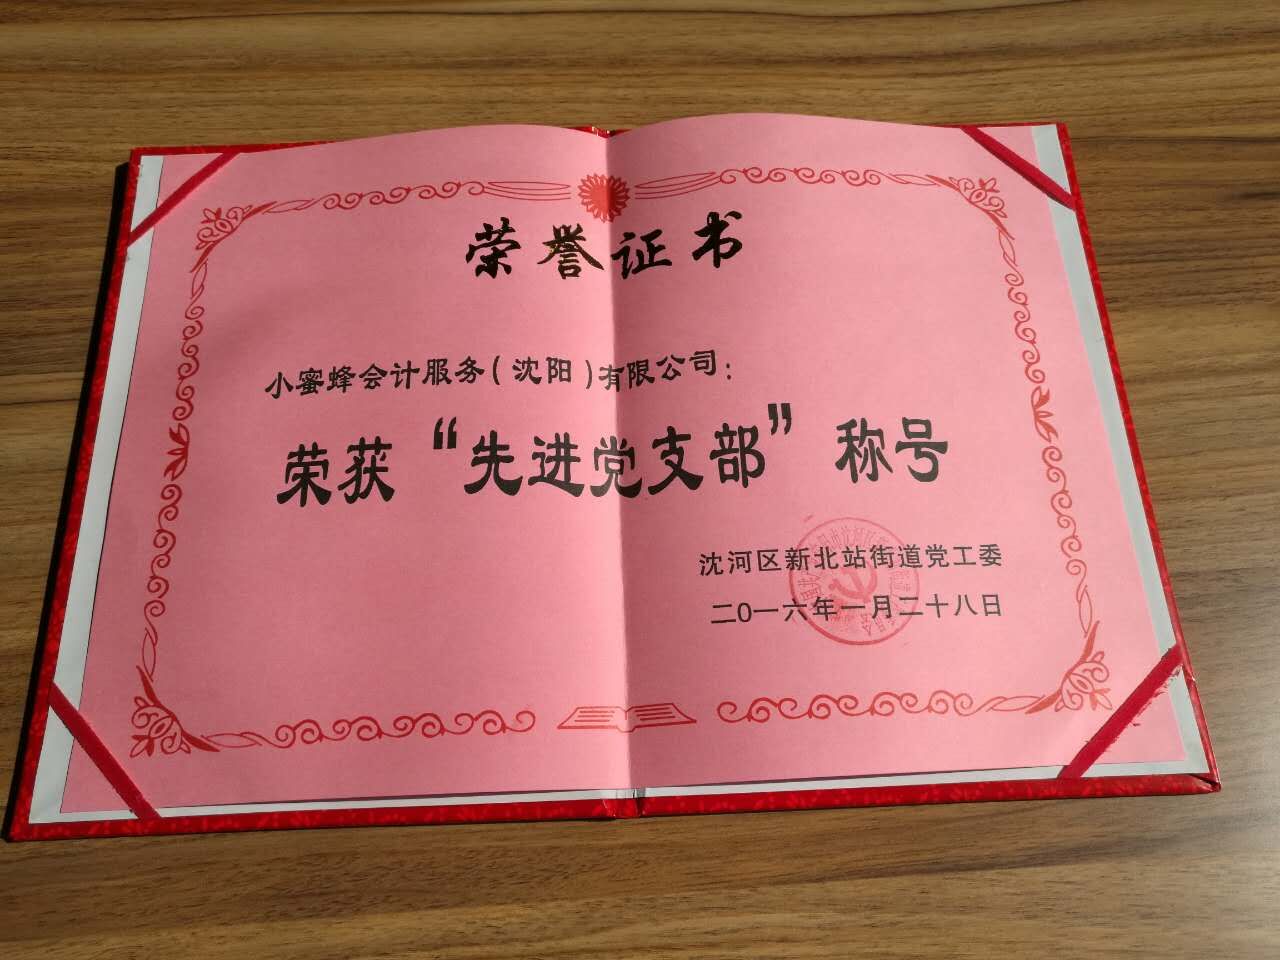 荣誉证书
小蜜蜂会计服务(沈阳)有限公司:
荣获“先进党支部”称号
沈河区新北站街道党工委
二0一六年一月二十八日